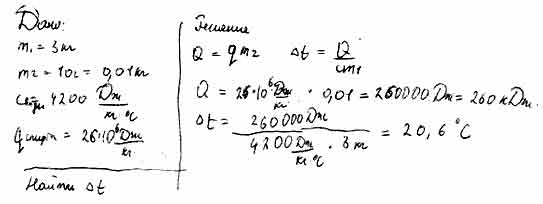 Дано:
m₁ = 3 кг
m₂ = 10г = 0,01 кг
Cводы 4200 Дж/кг °C
qспирт = 26·10⁶ Дж/кг
Найти Δt
Решение
Q = qm₂ Δt = Q/cm₁
Q = 26·10⁶ Дж/кг · 0,01 = 260000 Дж = 260 кДж.
Δt = 260000 Дж / 4200 Дж/кг °C · 3 кг = 20,6 °C